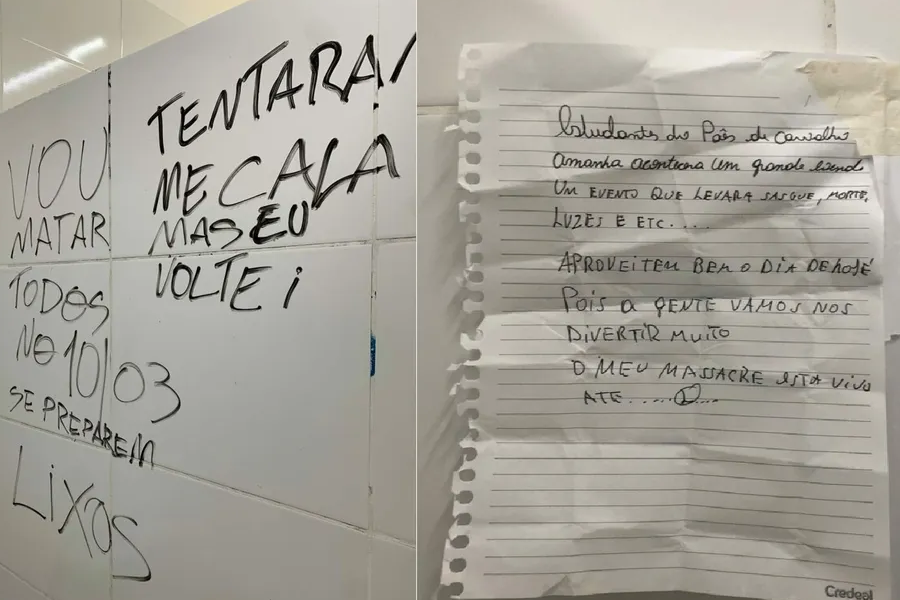 VOU
MATAR
TODOS
NO 10/03
SE PREPAREM
LiXOS
TENTARA
ME CALA
MAS EU
VOLTE i
Estudantes do Paes de Carvalho
amanha acontecera um grande evendo
UM EVENTO QUE LEVARA SASGUE, MORTE,
LUZES E ETC. . . .
APROVEITEM BEM O DIA DE HOJÉ
Pois a GENTE VAMOS NOS
DIVERTIR MUITO
O MEU MASSACRE ESTA VIVO
ATE. . . . . . . .
Credeal